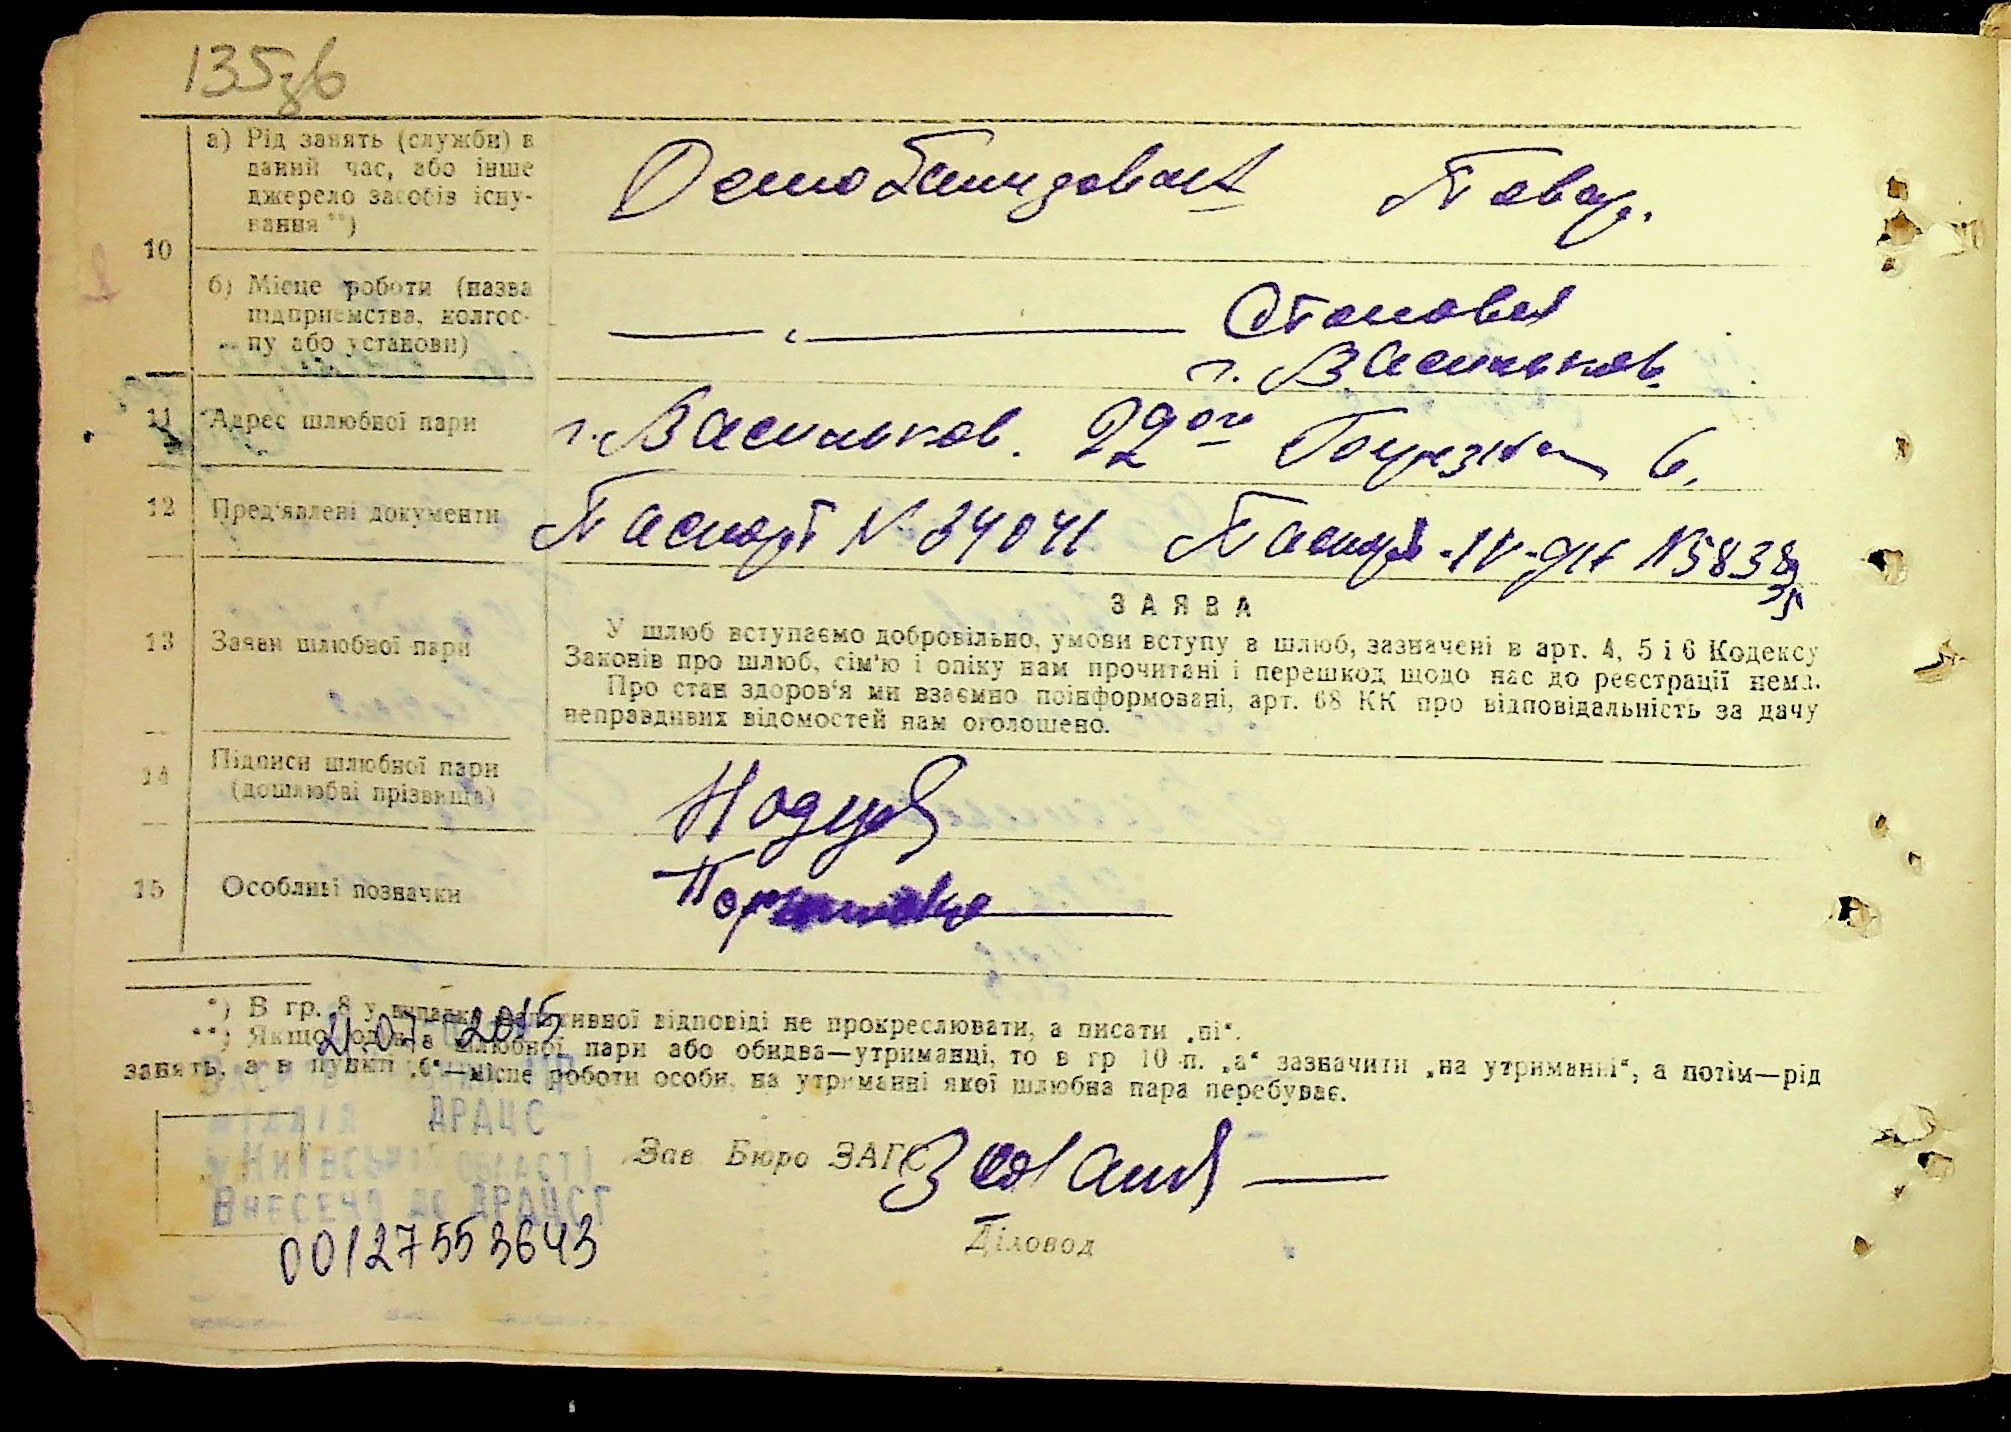 135зв
а) Рід занять (служби) в
даний час, або інше
джерело засобів існу-
вання **)
Демобилизован Повар.
10
б) Місце роботи (назва
підприємства, колгос-
пу або установи)
— „ — Столовая
г. Васильков
11 Адрес шлюбної пари
г. Васильков. 22 6.
12 Пред'явлені документи
Паспорт N 34041 Паспорт IV-
13 Заяви шлюбної пари
ЗАЯВА
У шлюб вступаємо добровільно, умови вступу в шлюб, зазначені в арт. 4, 5 і 6 Кодексу
Законів про шлюб, сім'ю і опіку нам прочитані і перешкод щодо нас до реєстрації нема.
Про стан здоров'я ми взаємно поінформовані, арт. 68 КК про відповідальність за дачу
неправдивих відомостей нам оголошено.
14 Підписи шлюбної пари
(дошлюбні прізвища)
15 Особливі позначки
*) В гр. 8 у випадку негативної відповіді не прокреслювати, а писати „ні“.
**) Якщо одна шлюбної пари або обидва—утриманці, то в гр 10 п. „а“ зазначити „на утриманні“, а потім—рід
занять, а в пункті „б“—місце роботи особи, на утриманні якої шлюбна пара перебуває.
21.07. 2015
ДРАЦС
Київської області
Внесено до ДРАЦСГ
00127553643
Зав Бюро ЗАГС
Діловод